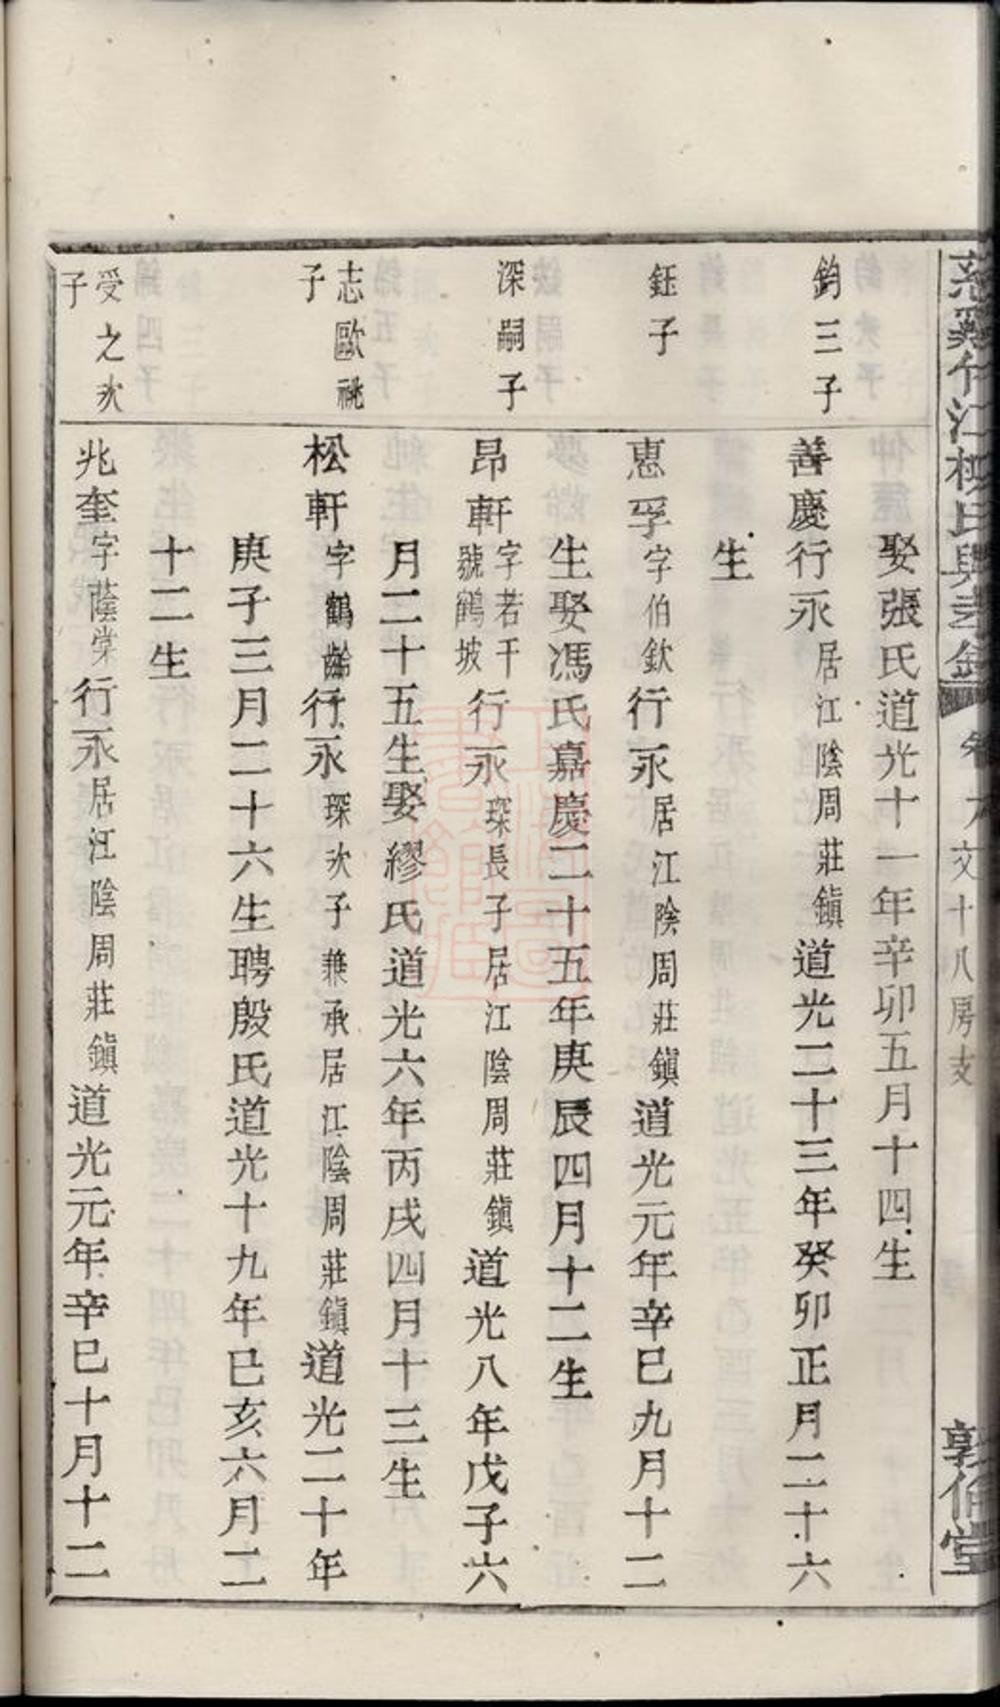 慈谿竹江楊氏與孝錄 卷六 文十八房支 敦倫堂
娶張氏道光十一年辛卯五月十四生
鈞三子
善慶行永居江陰周莊鎮道光二十三年癸卯正月二十六
生
鈺子
惠孚字伯欽行永居江陰周莊鎮道光元年辛巳九月十二
生娶馮氏嘉慶二十五年庚辰四月十二生
深嗣子
昂軒字若千
號鶴坡
行永琛長子居江陰周莊鎮道光八年戊子六
月二十五生娶繆氏道光六年丙戌四月十三生
志歐祧
子
松軒字鶴齡行永琛次子兼承居江陰周莊鎮道光二十年
庚子三月二十六生聘殷氏道光十九年己亥六月二
十二生
受之次
子
兆奎字蔭棠行永居江陰周莊鎮道光元年辛巳十月十二